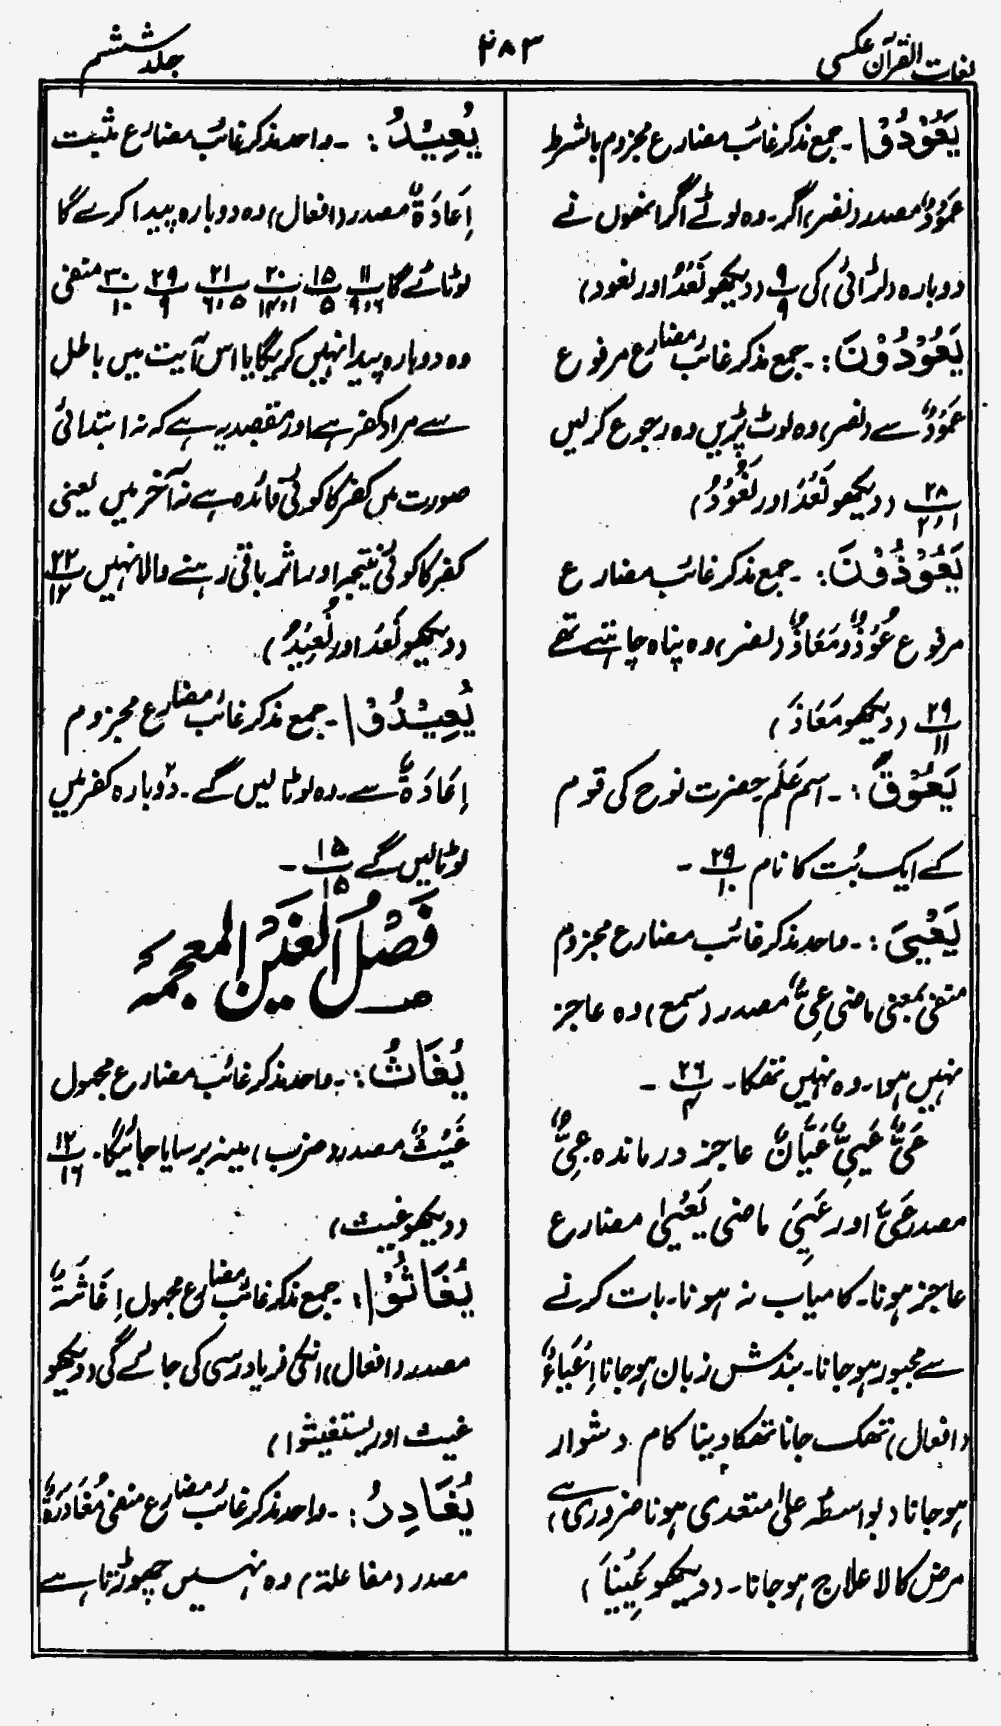 لغات القرآن عکسی
۲۸۳
جلد ششم
یَعُوْدُوْا۔ جمع مذکر غائب مضارع مجزوم بالشرط
عَوْدٌ مصدر (نصر) اگر۔ وہ لوٹے اگر انھوں نے
دوبارہ (لڑائی) کی ۹/۹ (دیکھو نَعُدْ اور نعود)
یَعُوْدُوْنَ:۔ جمع مذکر غائب مضارع مرفوع
عَوْدٌ سے (نصر) وہ لوٹ پڑیں وہ رجوع کر لیں
۲۸/۲،۱ (دیکھو نَعُدْ اور نَعُوْدُ)
یَعُوْذُوْنَ:۔ جمع مذکر غائب مضارع
مرفوع عَوْذٌ و مَعَاذٌ (نصر) وہ پناہ چاہتے تھے
۲۹/۱۱ (دیکھو مَعَاذَ)
یَعُوْقَ:۔ اسم عَلَم حضرت نوح کی قوم
کے ایک بُت کا نام ۲۹/۱۰۔
یَعْیَ:۔ واحد مذکر غائب مضارع مجزوم
منفی بمعنی ماضی عِیٌّ مصدر (سمع) وہ عاجز
نہیں ہوا۔ وہ نہیں تھکا۔ ۲۶/۴۔
عَیٌّ عَیِیٌّ عَیَّانٌ عاجز درماندہ عِیٌّ
مصدر عَیَّ اور عَیِیَ ماضی یَعْییٰ مضارع
عاجز ہونا۔ کامیاب نہ ہونا۔ بات کرنے
سے مجبور ہو جانا۔ بندش زبان ہو جانا اِعْیَاءٌ
(افعال) تھک جانا تھکا دینا کام دشوار
ہو جانا (بواسطہ علیٰ متعدی ہونا ضروری ہے)
مرض کا لا علاج ہو جانا۔ (دیکھو عَیِیْنَا)
یُعِیْدُ:۔ واحد مذکر غائب مضارع مثبت
اِعَادَۃٌ مصدر (افعال) وہ دوبارہ پیدا کرے گا
لوٹائے گا ۱۱/۹،۶ ۱۵/۵ ۲۰/۱۴،۱ ۲۱/۶،۵ ۲۹/۹ ۳۰/۱۰ منفی
وہ دوبارہ پیدا نہیں کریگا یا اس آیت میں باطل
سے مراد کفر ہے اور مقصد یہ ہے کہ نہ ابتدائی
صورت میں کفر کا کوئی فائدہ ہے نہ آخر میں یعنی
کفر کا کوئی نتیجہ اور اثر باقی رہنے والا نہیں ۲۲/۱۲
(دیکھو نَعُدْ اور نُعِیْدُ)
یُعِیْدُوْا۔ جمع مذکر غائب مضارع مجزوم
اِعَادَۃٌ سے۔ وہ لوٹا لیں گے۔ دوبارہ کفر میں
لوٹا لیں گے ۱۵/۱۵۔
فَصْلُ الْغَیْنِ الْمُعْجَمَۃ
یُغَاثُ:۔ واحد مذکر غائب مضارع مجہول
غَیْثٌ مصدر (ضرب) مینہ برسایا جائیگا۔ ۱۲/۱۶
(دیکھو غیث)
یُغَاثُوْا:۔ جمع مذکر غائب مضارع مجہول اِغَاثَۃٌ
مصدر (افعال) انکی فریاد رسی کی جائے گی (دیکھو
غیث اور یستغیثوا)
یُغَادِرُ:۔ واحد مذکر غائب مضارع منفی مُغَادَرَۃٌ
مصدر (مفاعلۃ) وہ نہیں چھوڑتا ہے